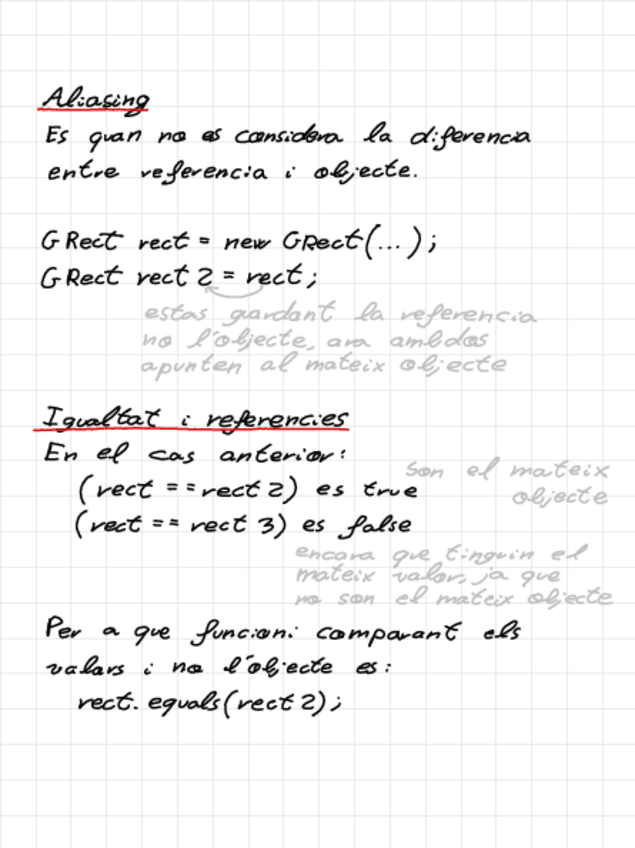 Aliasing
Es quan no es considera la diferencia
entre referencia i objecte.
GRect rect = new GRect(...);
GRect rect2 = rect;
estas guardant la referencia
no l'objecte, ara ambdos
apunten al mateix objecte
Igualtat i referencies
En el cas anterior:
(rect == rect2) es true
son el mateix
objecte
(rect == rect3) es false
encara que tinguin el
mateix valor, ja que
no son el mateix objecte
Per a que funcioni comparant els
valors i no l'objecte es:
rect.equals(rect2);